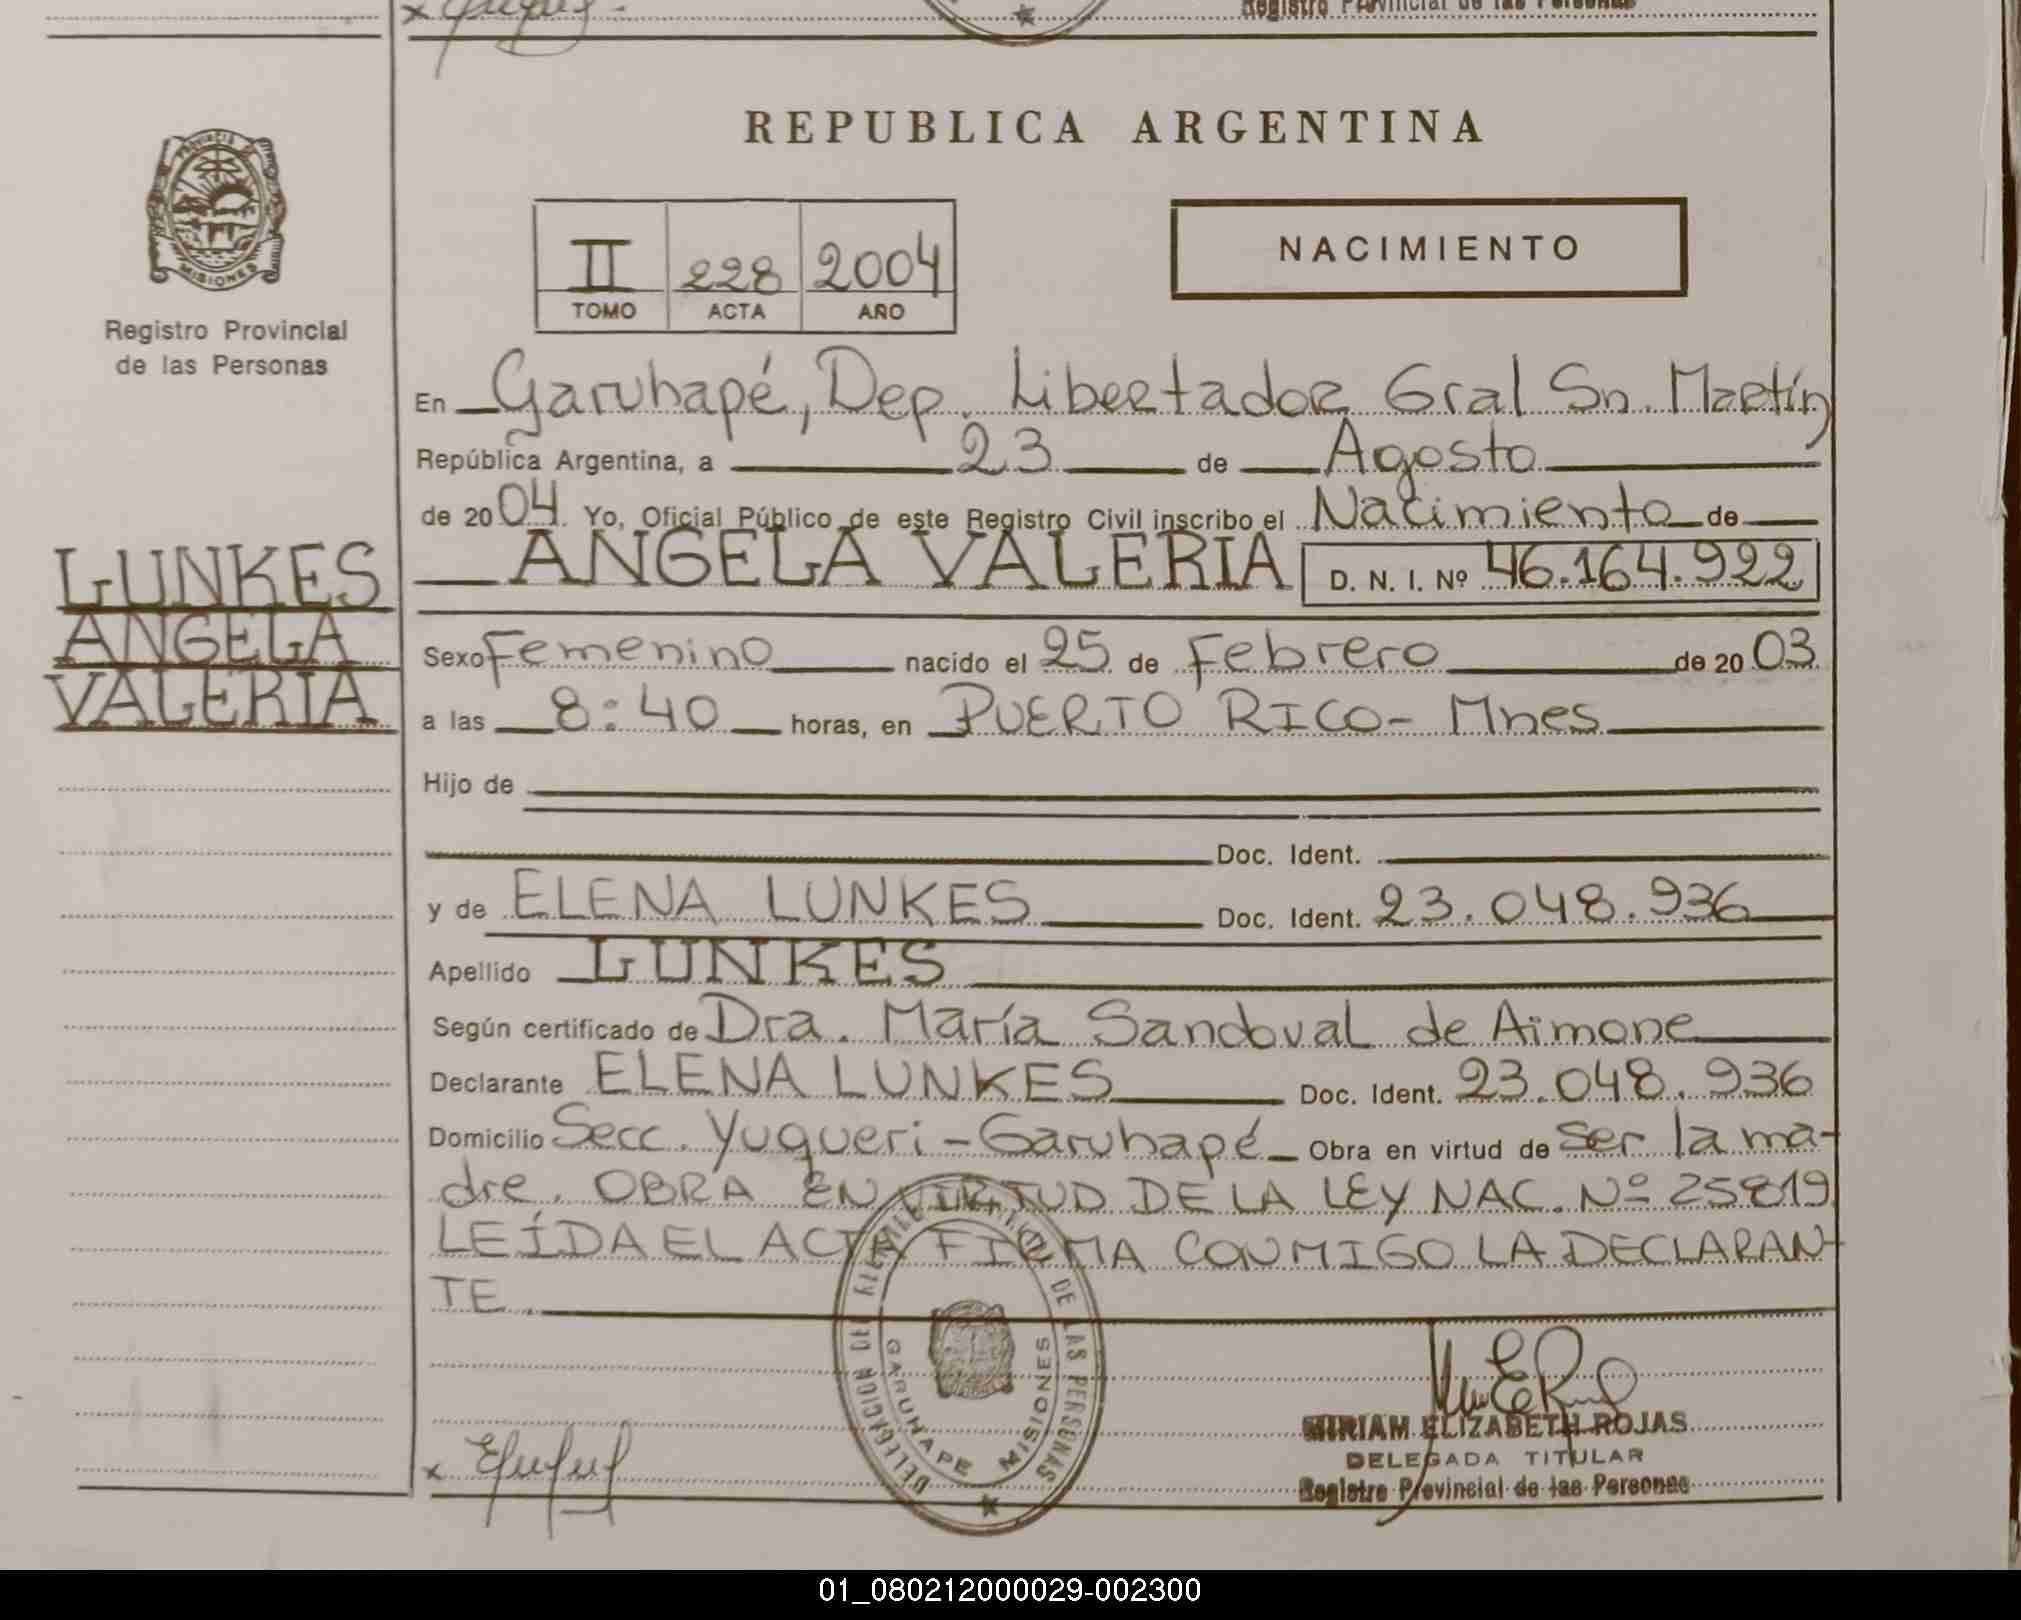 Registro Provincial de las Personas
PROVINCIA
MISIONES
Registro Provincial
de las Personas
LUNKES
ANGELA
VALERIA
REPUBLICA ARGENTINA
II 228 2004
TOMO ACTA AÑO
NACIMIENTO
En Garuhapé, Dep. Libertador Gral Sn. Martín
República Argentina, a 23 de Agosto
de 2004. Yo, Oficial Público de este Registro Civil inscribo el Nacimiento de
ANGELA VALERIA D. N. I. Nº 46.164.922
Sexo Femenino nacido el 25 de Febrero de 2003
a las 8:40 horas, en PUERTO RICO- Mnes
Hijo de
Doc. Ident.
y de ELENA LUNKES Doc. Ident. 23.048.936
Apellido LUNKES
Según certificado de Dra. María Sandoval de Aimone
Declarante ELENA LUNKES Doc. Ident. 23.048.936
Domicilio Secc. Yuqueri - Garuhapé Obra en virtud de ser la ma-
dre. OBRA EN VIRTUD DE LA LEY NAC. Nº 25819
LEÍDA EL ACTA FIRMA CONMIGO LA DECLARAN-
TE.
DE LAS PERSONAS
DELEGACION DEL
GARUHAPE MISIONES
x
MIRIAM ELIZABETH ROJAS
DELEGADA TITULAR
Registro Provincial de las Personas
01_080212000029-002300